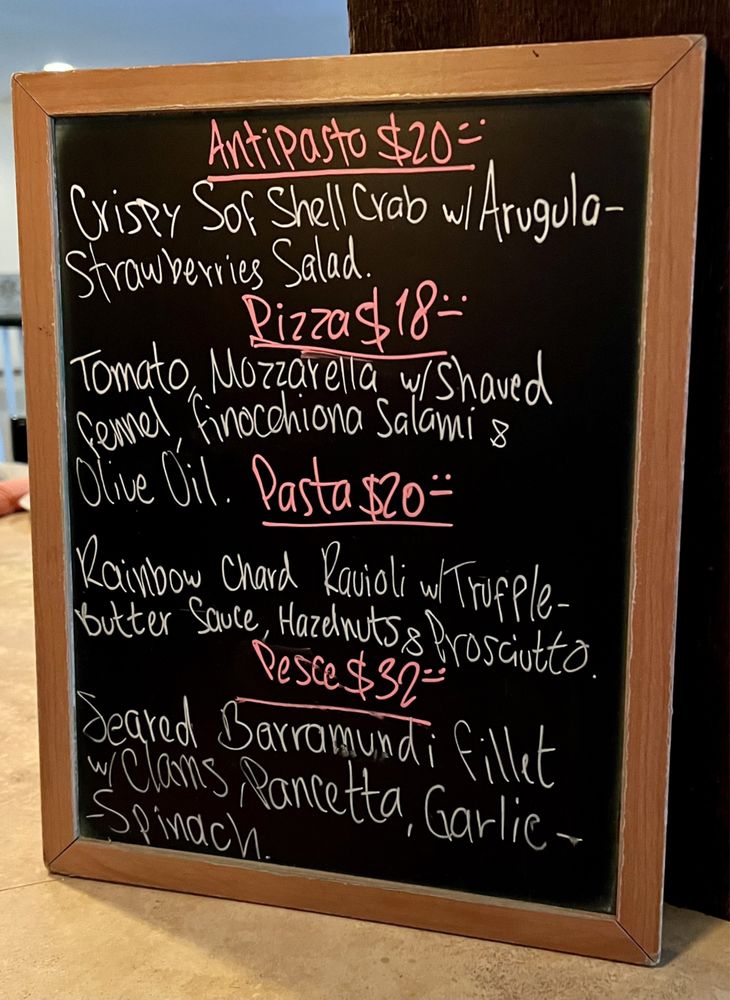 Antipasto $20=
Crispy Sof Shell Crab w/ Arugula-
Strawberries Salad.
Pizza $18=
Tomato, Mozzarella w/ Shaved
fennel, finocchiona Salami &
Olive Oil. Pasta $20=
Rainbow Chard Ravioli w/ Truffle-
Butter Sauce, Hazelnuts & Prosciutto.
Pesce $32=
Seared Barramundi fillet
w/ Clams, Pancetta, Garlic-
-Spinach.